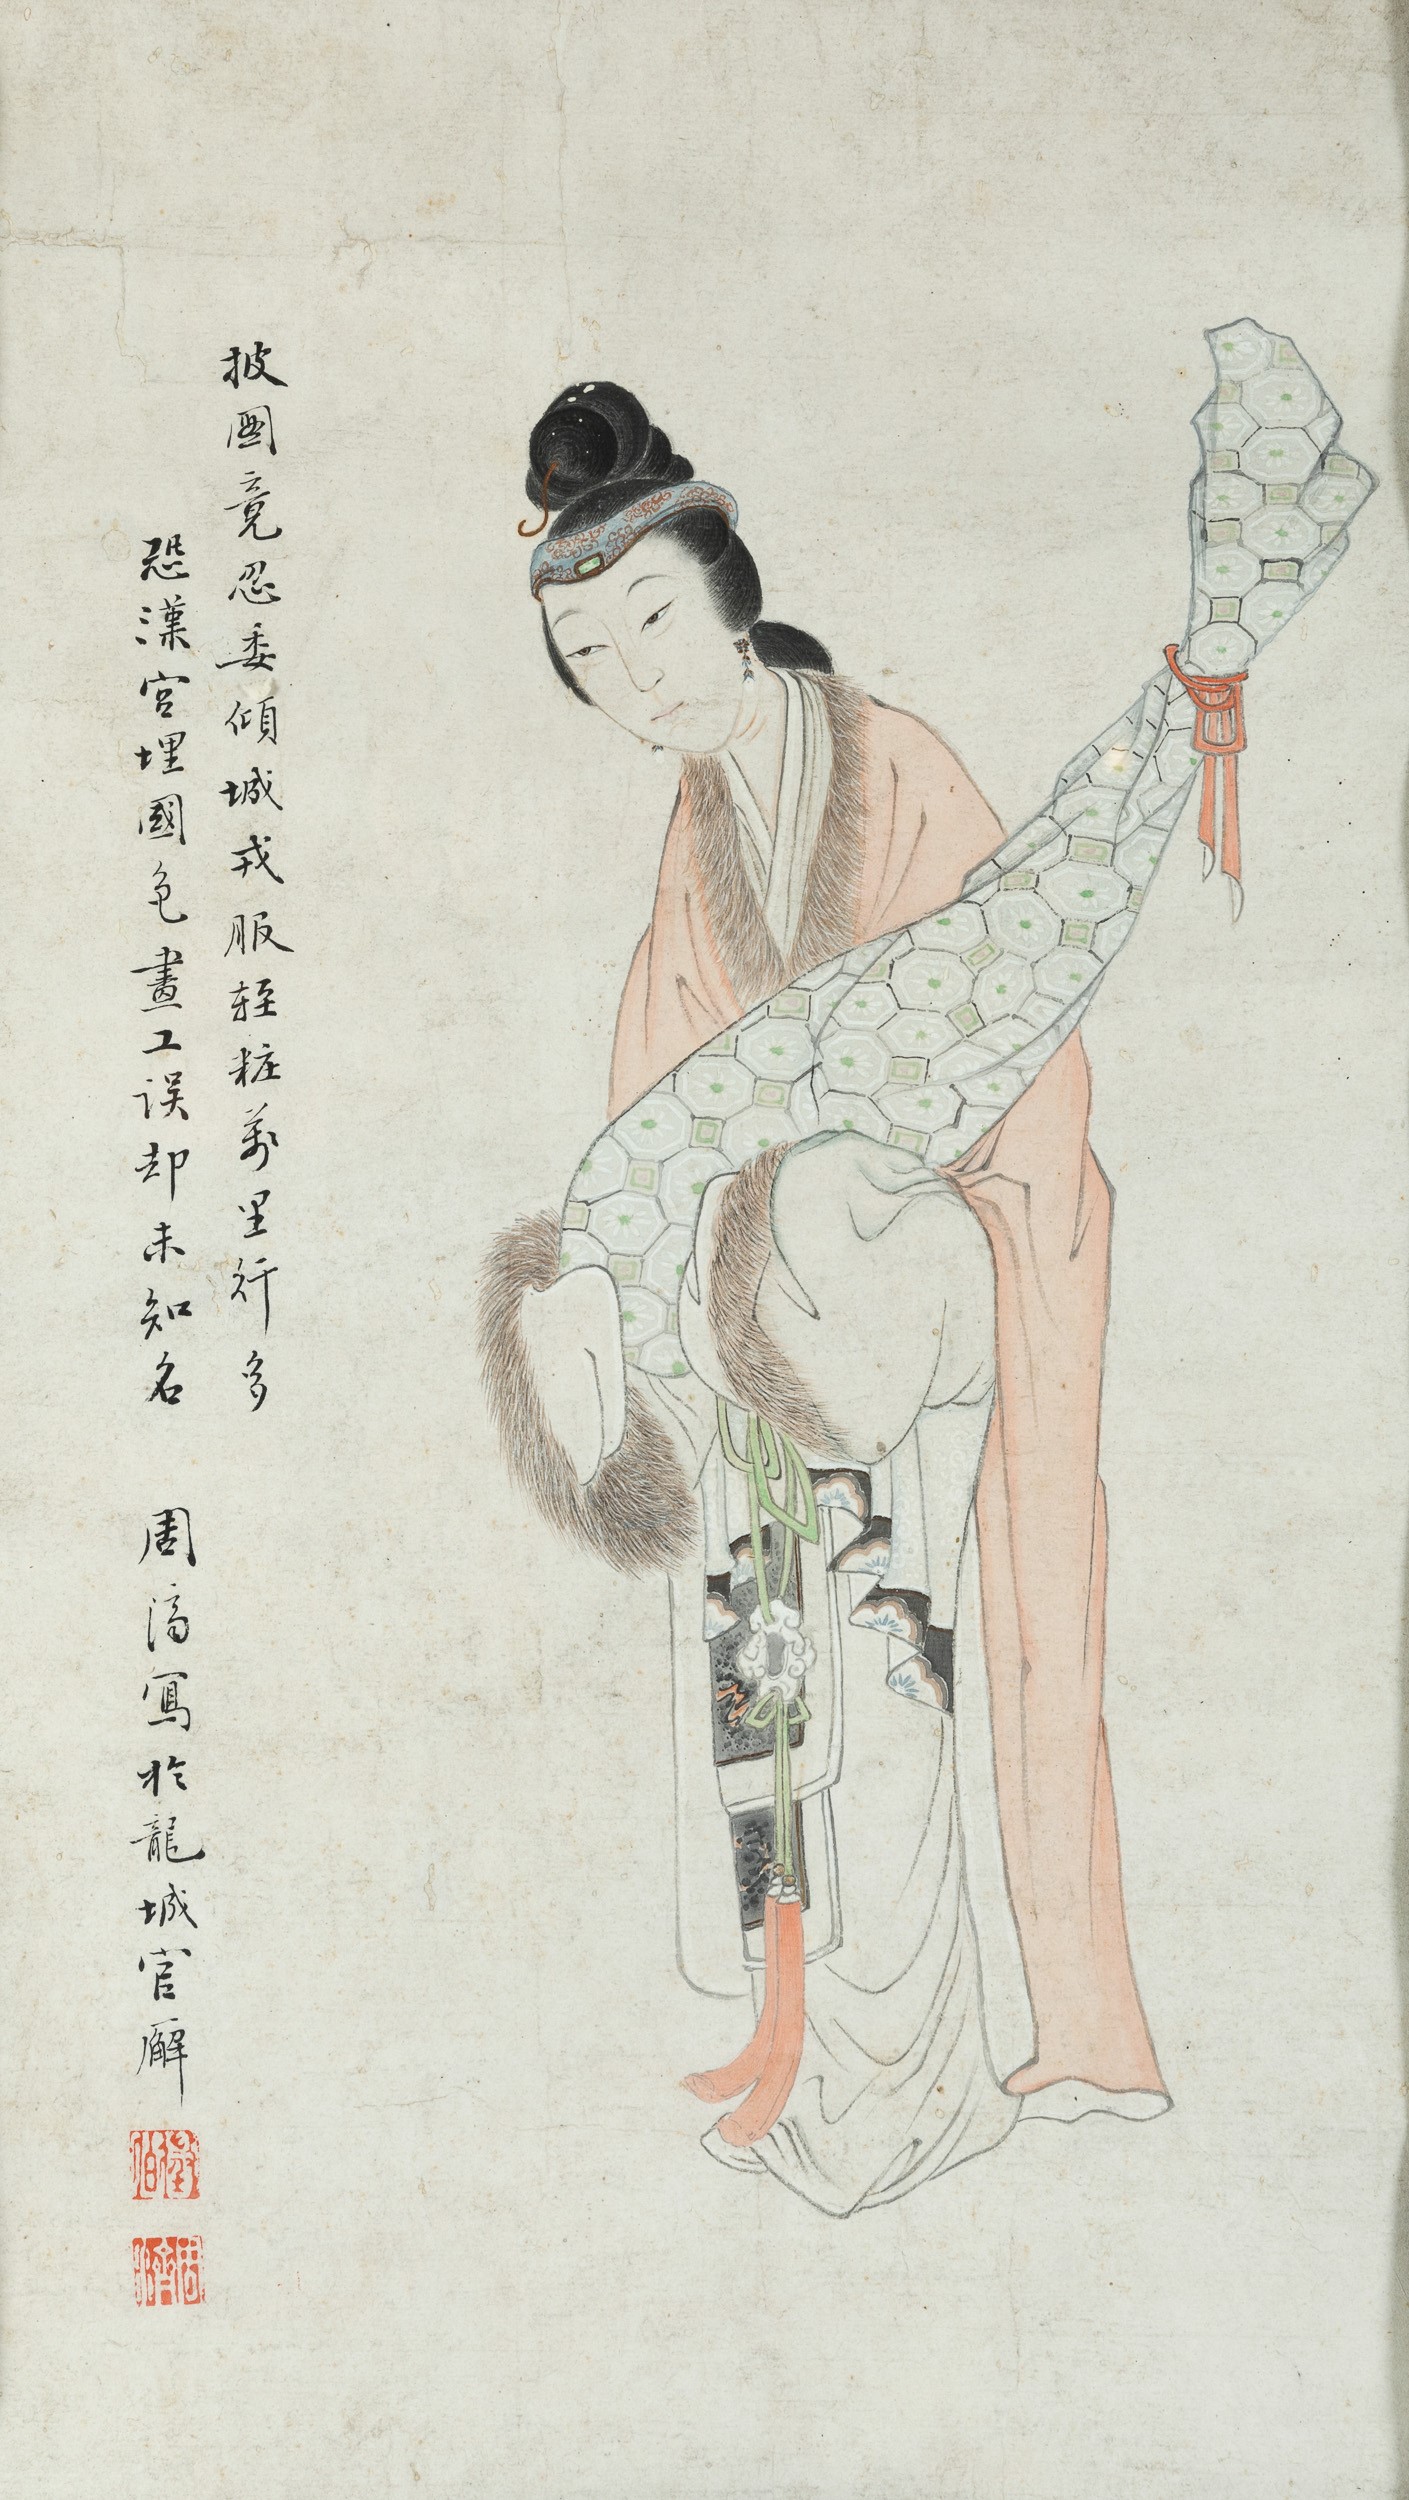 披圖竟忍委傾城戎服輕粧萬里行多
恐漢宮埋國色畫工误却未知名
周濤寫於龍城官廨